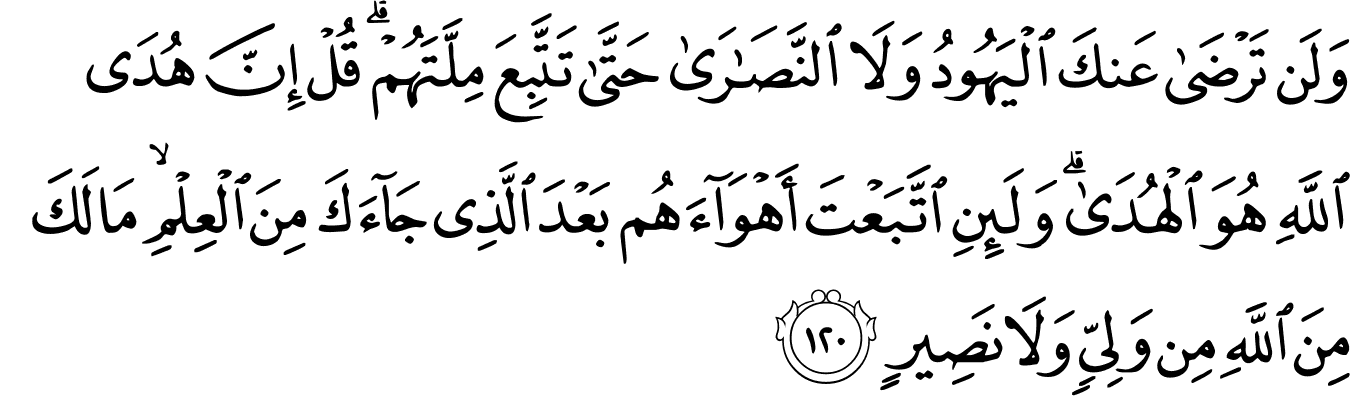 وَلَن تَرْضَىٰ عَنكَ ٱلْيَهُودُ وَلَا ٱلنَّصَـٰرَىٰ حَتَّىٰ تَتَّبِعَ مِلَّتَهُمْ ۗ قُلْ إِنَّ هُدَى
ٱللَّهِ هُوَ ٱلْهُدَىٰ ۗ وَلَئِنِ ٱتَّبَعْتَ أَهْوَآءَهُم بَعْدَ ٱلَّذِى جَآءَكَ مِنَ ٱلْعِلْمِ ۙ مَا لَكَ
مِنَ ٱللَّهِ مِن وَلِىٍّ وَلَا نَصِيرٍ ١٢٠